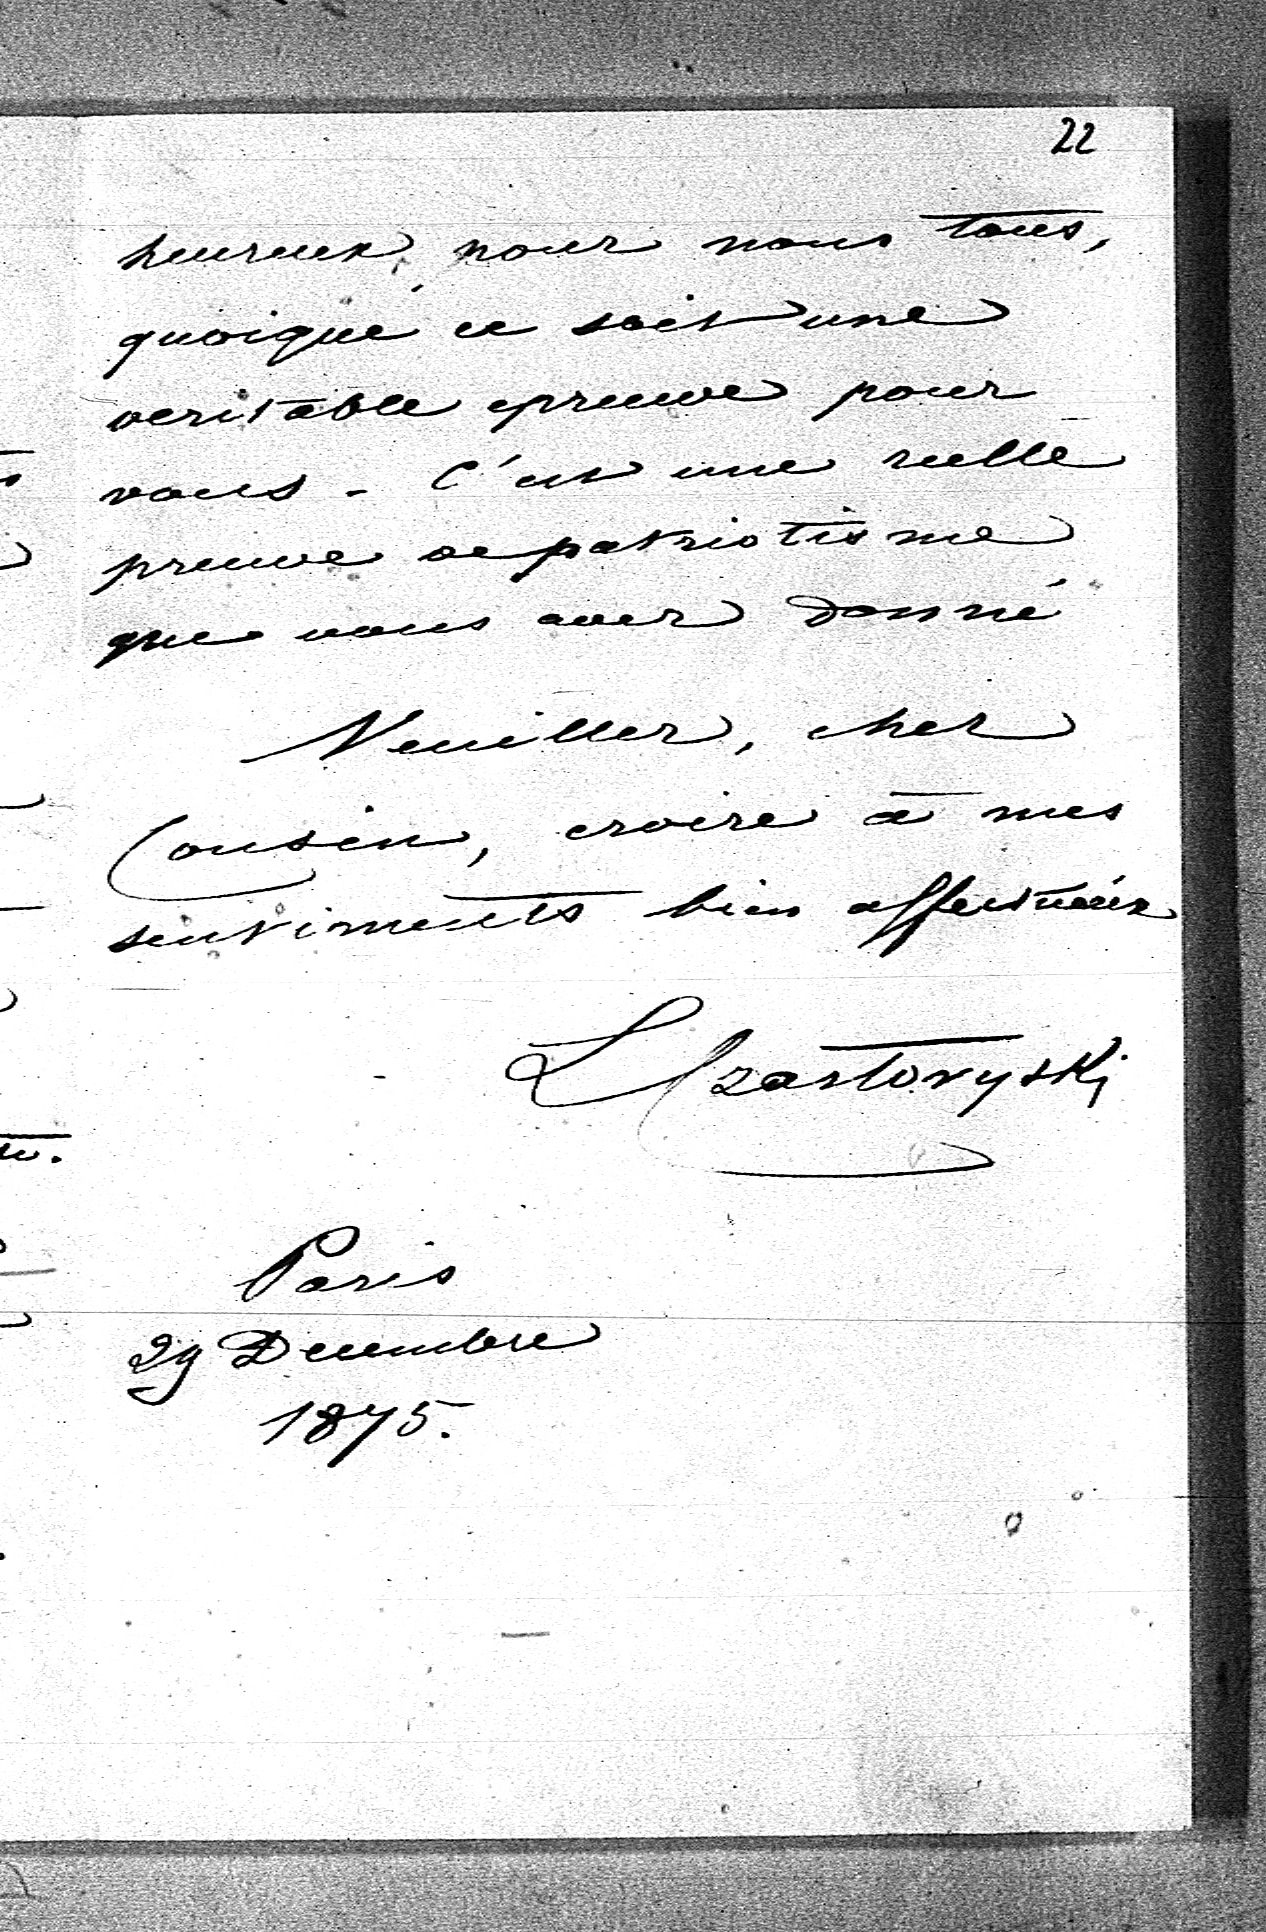 22
heureux pour nous tous,
quoique ce soit une
veritable epreuve pour
vous. C'est une reelle
preuve de patriotisme
que vous avez donné
Veuillez, cher
Cousin, croire à mes
sentiments bien affectueux
L Czartoryski
Paris
29 Decembre
1875.